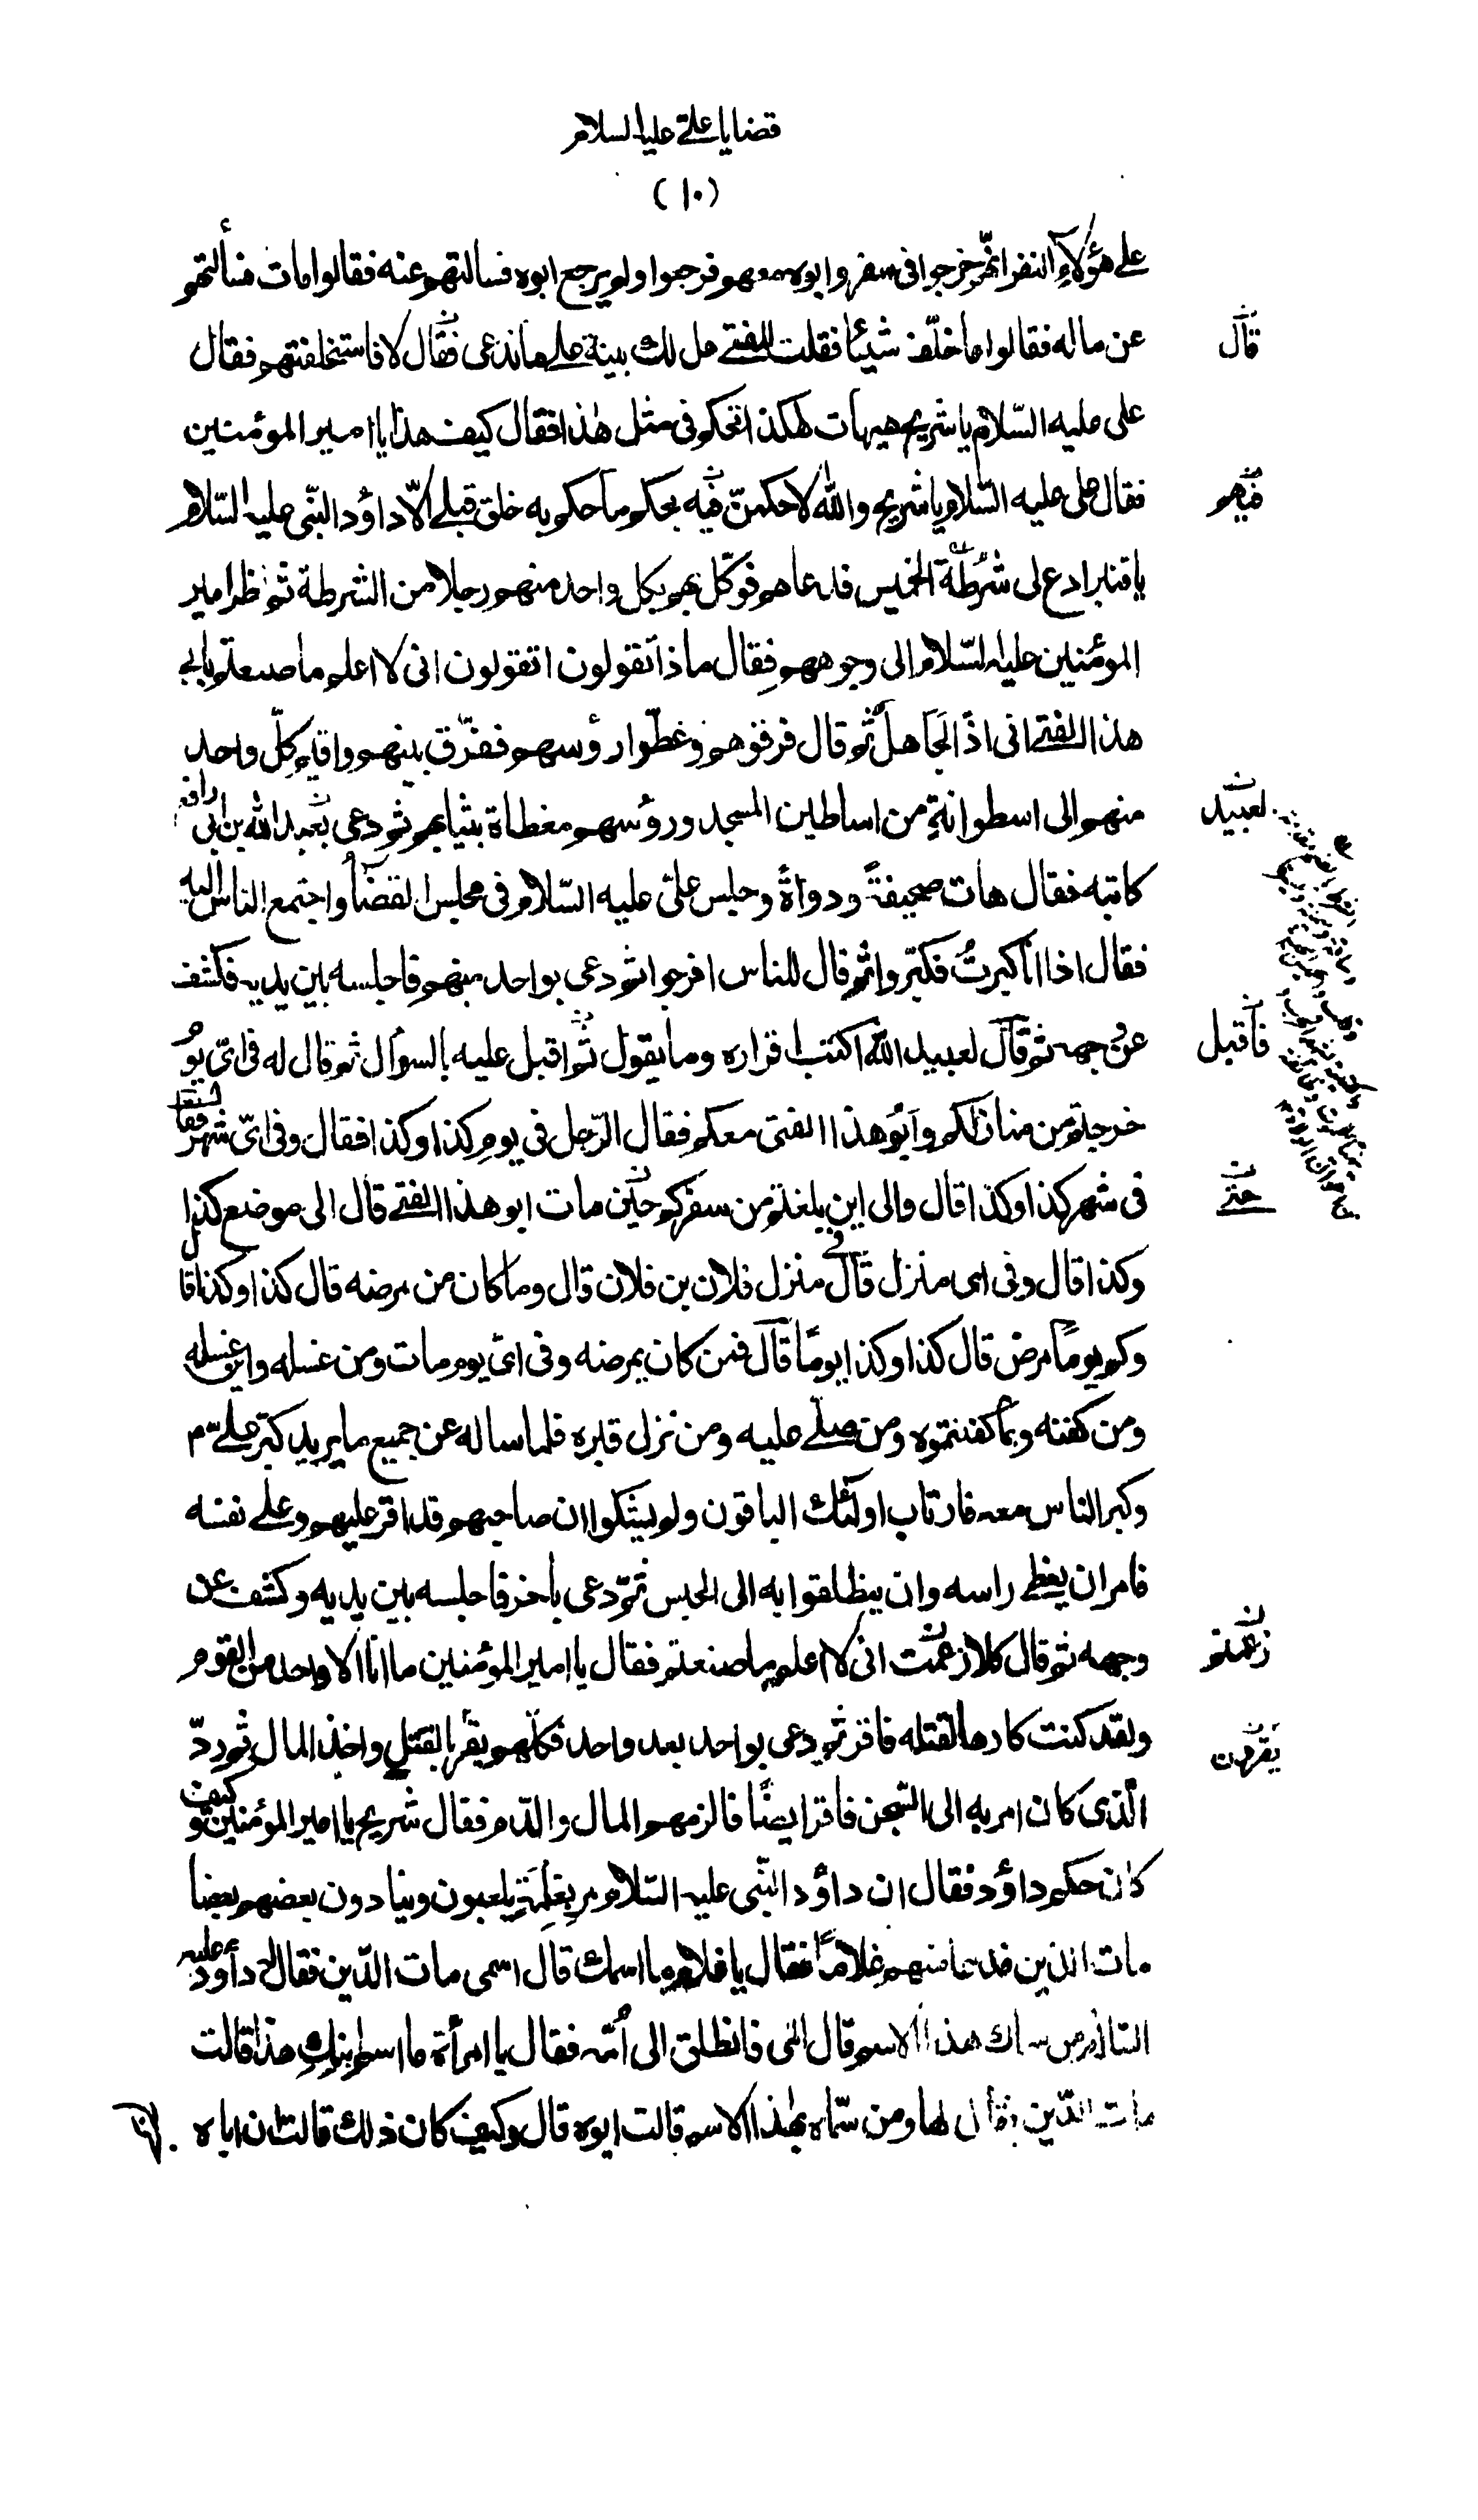 قضايا علي عليه السلام
(١٠)
على هؤلاء النفر انهم خرجوا فى سفر وابوه معهم فرجعوا ولم يرجع ابوه فسالتهم عنه فقالوا مات فسألتهم
عن ماله فقالوا ما خلّف شيئًا فقلت للفتى هل لك بينة على ما تدعى فقال لا فاستحلفتهم فقال
قال
على عليه السّلام يا شريح هيهات هكذا تحكم فى مثل هٰذا فقال كيف هذا يا امير المؤمنين
فقال على عليه السّلام يا شريح والله لاحكمنّ فيه بحكم ما حكم به خلق قبلى الّا داؤد النّبى عليه السّلام
فيهم
يا قنبر ادع لى شرطة الخميس فدعاهم فوكّل بهم بكل واحد منهم رجلا من الشرطة ثم نظر امير
المؤمنين عليه السّلام الى وجوههم فقال ما ذا تقولون اتقولون انى لا اعلم ما صنعتم بابى
هذا الفتى انى اذًا لجاهل ثم قال فرقوهم وغطّوا رؤسهم ففرّق بينهم واقيم كلّ واحد
منهم الى اسطوانةٍ من اساطين المسجد ورؤسهم مغطاة بثيابهم ثم دعى بعبد الله بن ابى رافع
لعبيد
كاتبه فقال هات صحيفةً ودواةً وجلس علىّ عليه السّلام فى مجلس القضاء واجتمع الناس اليه
فقال اذا انا كبرتُ فكبّروا ثم قال للناس افرجوا ثم دعى بواحد منهم فاجلسه بين يديه فكشف
عن وجهه ثم قال لعبيد الله اكتب اقراره وما يقول ثم اقبل عليه بالسوال ثم قال له فى اىّ يوم
فاقبل
خرجتم من منازلكم وابو هذا الفتى معكم فقال الرّجل فى يوم كذا وكذا فقال وفى اىّ شهر فقا
فى شهر كذا وكذا قال والى اين بلغتم من سفركم حين مات ابو هذا الفتى قال الى موضع كذا
حتى
وكذا قال وفى اى منزل قال فى منزل فلان بن فلان قال وما كان من مرضه قال كذا وكذا قال
وكم يومًا مرض قال كذا وكذا يومًا قال فمن كان يمرضه وفى اىّ يوم مات ومن غسله واين غسله
ومن كفنه وبما كفنتموه ومن صلّى عليه ومن نزل قبره فلما ساله عن جميع ما يريد كبّر علىّ م
وكبر الناس معه فارتاب اولئك الباقون ولم يشكوا ان صاحبهم قد اقر عليهم وعلى نفسه
فامر ان يغطى راسه وان ينطلقوا به الى الحبس ثمّ دعى باخر فاجلسه بين يديه وكشف عن
وجهه ثم قال كلا زعمت انى لا اعلم ما صنعتم فقال يا امير المؤمنين ما انا الا واحد من القوم
زعمتم
ولقد كنت كارها لقتله فاقر ثم دعى بواحد بعد واحد فكلّهم يقر بالقتل واخذ المال ثم ردّ
يقرون
الّذى كان امر به الى السّجن فاقر ايضًا فالزمهم المال والدّم فقال شريح يا امير المؤمنين وكيف
كان حكم داؤد فقال ان داؤد النّبى عليه السّلام مر بغلمةٍ يلعبون وينادون بعضهم بعضا
مات الدين فدعا منهم غلامًا فقال يا غلام ما اسمك قال اسمى مات الدّين فقال له داؤد عليه
السّلام من سماك هذا الاسم قال امّى فانطلق الى أمّه فقال يا امرأة ما اسم ابنكِ هذا قالت
مات الدّين فقال لها ومن سمّاه بهٰذا الاسم قالت ابوه قال وكيف كان ذلك قالت ان اباه